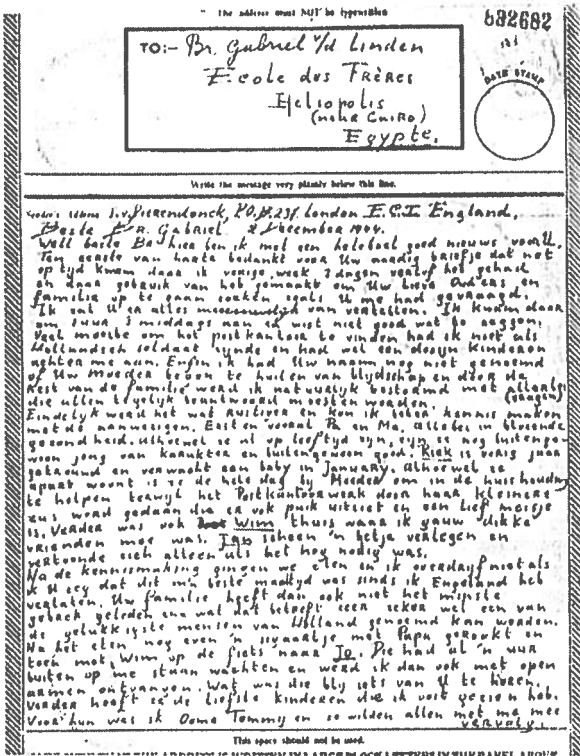 The address must NOT be typewritten
682682
TO:- Br. Gabriel v/d Linden
Ecole des Frères
Heliopolis
(near Cairo)
Egypte.
DATE STAMP
Write the message very plainly below this line.
Sender's Address J.v. Pierendonck, P.O.B. 235, London E.C.I England,
Beste Br. Gabriel 2 December 1944.
Well beste Br. hier ben ik met een heleboel goed nieuws voor U.
Ten eerste van harte bedankt voor Uw aardig briefje dat net
op tijd kwam daar ik verige week 7 dagen verlof heb gehad
en daar gebruik van heb gemaakt om Uw lieve Ouders en
familie op te gaan zoeken zoals U me had gevraagd.
Ik zal U er alles van vertellen. Ik kwam daar
om 3 uur 's middags aan en wist niet goed wat te zeggen.
Veel moeite om het postkantoor te vinden had ik niet als
Hollandsch soldaat zynde en had wel een dozyn kinderen
achter me aan. Enfin ik had Uw naam nog niet genoemd
of Uw Moeder begon te huilen van blydschap en door de
rest van de familie werd ik natuurlyk bestormd met allerlei
(vragen)
die allen tegelyk beantwoord moesten worden.
Eindelyk werd het wat rustiger en kon ik beter kennis maken
met de aanwezigen. Eerst en vooral Pa en Ma, allebei in bloeiende
gezondheid. Alhoewel ze al op leeftyd zyn, zyn ze nog buitenge-
woon jong van karakter en buitengewoon goed. Riek is verig jaar
getrouwd en verwacht een baby in January. Alhoewel ze
apart woont is ze de hele dag by Moeder om in de huishouding
te helpen terwyl het Postkantoorwerk door haar kleinere
zus word gedaan die er ook puik uitziet en een lief meisje
is. Verder was ook Wim thuis waar ik gauw dikke
vrienden mee was. Jan scheen 'n betje verlegen en
vertoonde zich alleen als het hoog nodig was.
Na de kennismaking gingen we eten en ik overdryf niet als
ik U zeg dat dit m'n beste maaltyd was sinds ik Engeland heb
verlaten. Uw familie heeft dan ook niet het minste
gebrek geleden en wat dat betreft zeer zeker wel een van
de gelukkigste mensen van Holland genoemd kan worden.
Na het eten nog even 'n sigaartje met Papa gerookt en
toen met Wim op de fiets naar Jo. Die had al 'n uur
buiten op me staan wachten en werd ik dan ook met open
armen ontvangen. Wat was die bly iets van U te horen.
Verder heeft ze de liefste kinderen die ik ooit gezien heb.
Voor hun was ik Oome Tommy en ze wilden allen met me mee
vervolg.
This space should not be used.